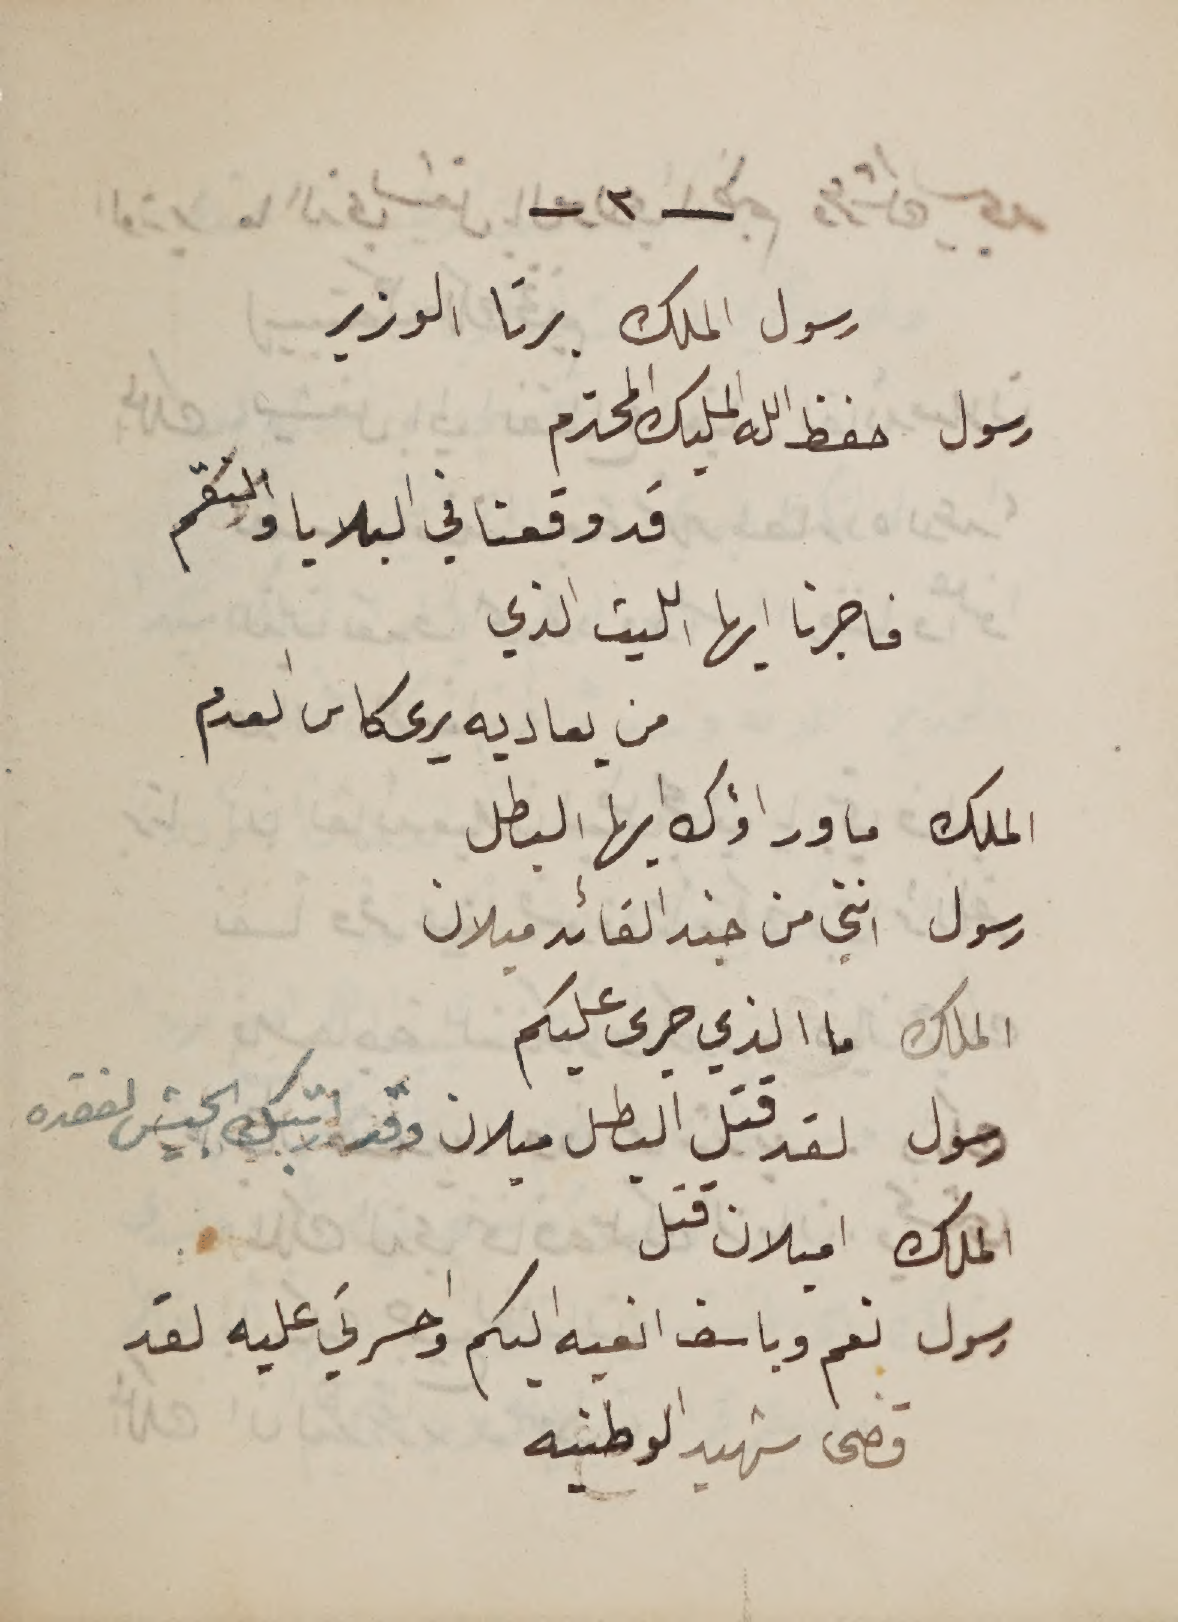 — ٢ —
رسول الملك برتا الوزير
رسول حفظ الله المليك المحترم
قد وقعنا في البلايا والنقم
فاجرنا ايها الليث الذي
من يعاديه يرى كاس العدم
الملك ما وراؤك ايها البطل
رسول انني من جند القائد ميلان
الملك ما الذي جرى عليكم
رسول لقد قتل البطل ميلان وقد ارتبك الجيش لفقده
الملك اميلان قتل
رسول نعم وباسف انعيه اليكم واحسرتي عليه لقد
قضى شهيد الوطنيه